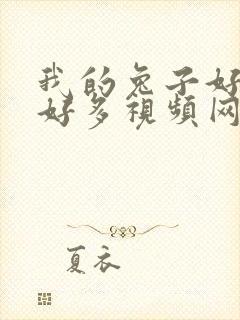 我的兔子好
好多视频网
夏衣